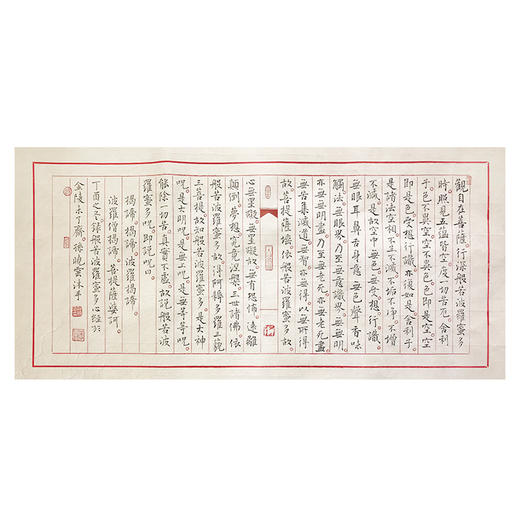 觀自在菩薩。行深般若波羅蜜多
時。照見五蘊皆空。度一切苦厄。舍利
子。色不異空。空不異色。色即是空。空
即是色。受想行識。亦復如是。舍利子。
是諸法空相。不生不滅。不垢不淨。不增
不減。是故空中無色。無受想行識。
無眼耳鼻舌身意。無色聲香味
觸法。無眼界。乃至無意識界。無無明。
亦無無明盡。乃至無老死。亦無老死盡。
無苦集滅道。無智亦無得。以無所得
故。菩提薩埵。依般若波羅蜜多故。
心無罣礙。無罣礙故。無有恐怖。遠離
顛倒夢想。究竟涅槃。三世諸佛。依
般若波羅蜜多故。得阿耨多羅三藐
三菩提。故知般若波羅蜜多。是大神
呪。是大明呪。是無上呪。是無等等呪。
能除一切苦。真實不虛。故說般若波
羅蜜多呪。即說呪曰。
揭諦。揭諦。波羅揭諦。
波羅僧揭諦。菩提薩婆訶。
丁酉之冬錄般若波羅蜜多心經於
金陵未了齋孫曉雲沐手